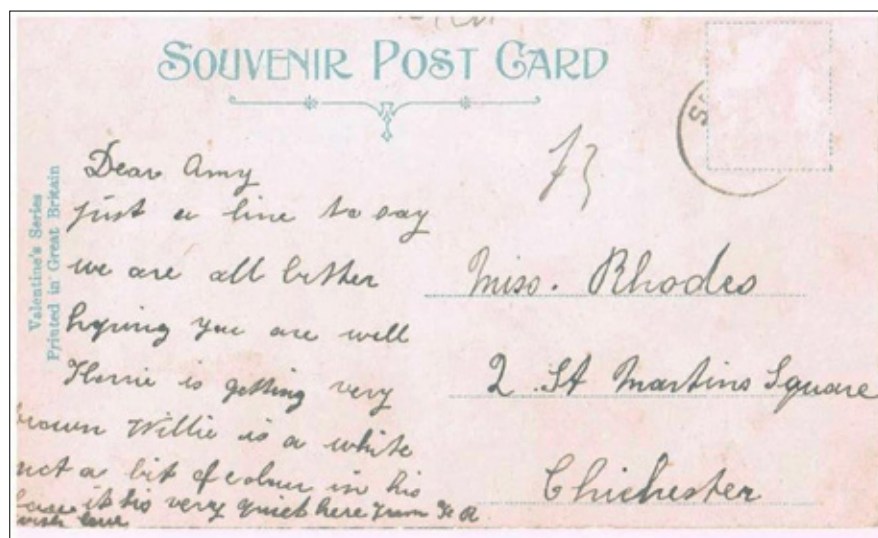 SOUVENIR POST CARD
Valentine's Series
Printed in Great Britain
Dear Amy
just a line to say
we are all better
hoping you are well
Florrie is getting very
brown Willie is a white
not a bit of colour in his
face it tis very quiet here from
with love
Miss. Rhodes
2 St Martins Square
Chichester